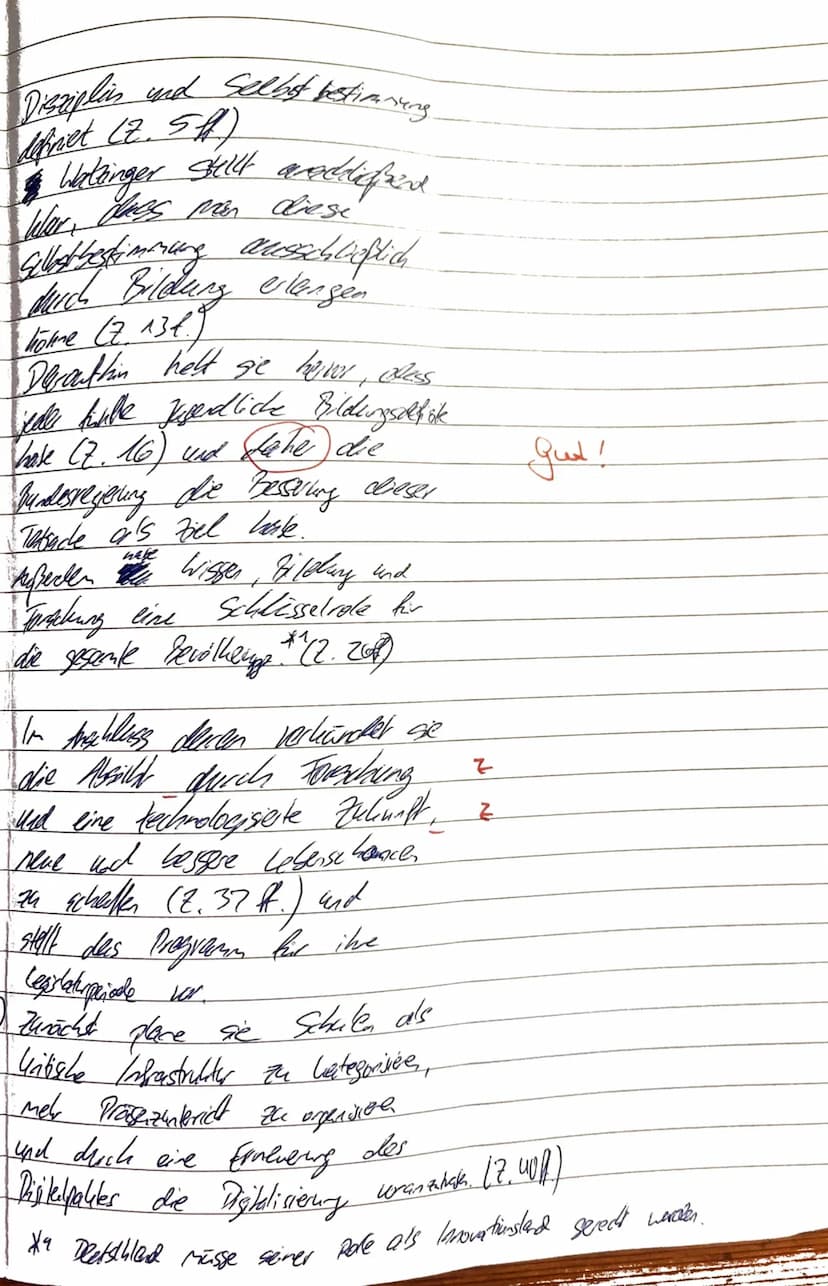 Disziplin und Selbstbestimmung
definiert (Z. 5 ff.)
Watzinger stellt anschließend
klar, dass man diese
Selbstbestimmung ausschließlich
durch Bildung erlangen
könne (Z. 13 f.)
Daraufhin hebt sie hervor, dass
jeder fünfte Jugendliche Bildungsdefizite
habe (Z. 16) und daher die
Gut!
Bundesregierung die Besserung dieser
Tatsache als Ziel habe.
Außerdem habe Wissen, Bildung und
Forschung eine Schlüsselrolle für
die gesamte Bevölkerung.*¹ (Z. 20ff)
Im Anschluss daran verkündet sie
die Absicht durch Forschung
Z
und eine technologisierte Zukunft,
Z
neue und bessere Lebenschancen
zu schaffen (Z. 37 ff.) und
stellt das Programm für ihre
Legislaturperiode vor.
Zunächst plane sie Schulen als
kritische Infrastruktur zu kategorisieren,
mehr Präsenzunterricht zu organisieren
und durch eine Erneuerung des
Digitalpaktes die Digitalisierung voranzutreiben. (Z. 40ff.)
*¹ Deutschland müsse seiner Rolle als Innovationsland gerecht werden.